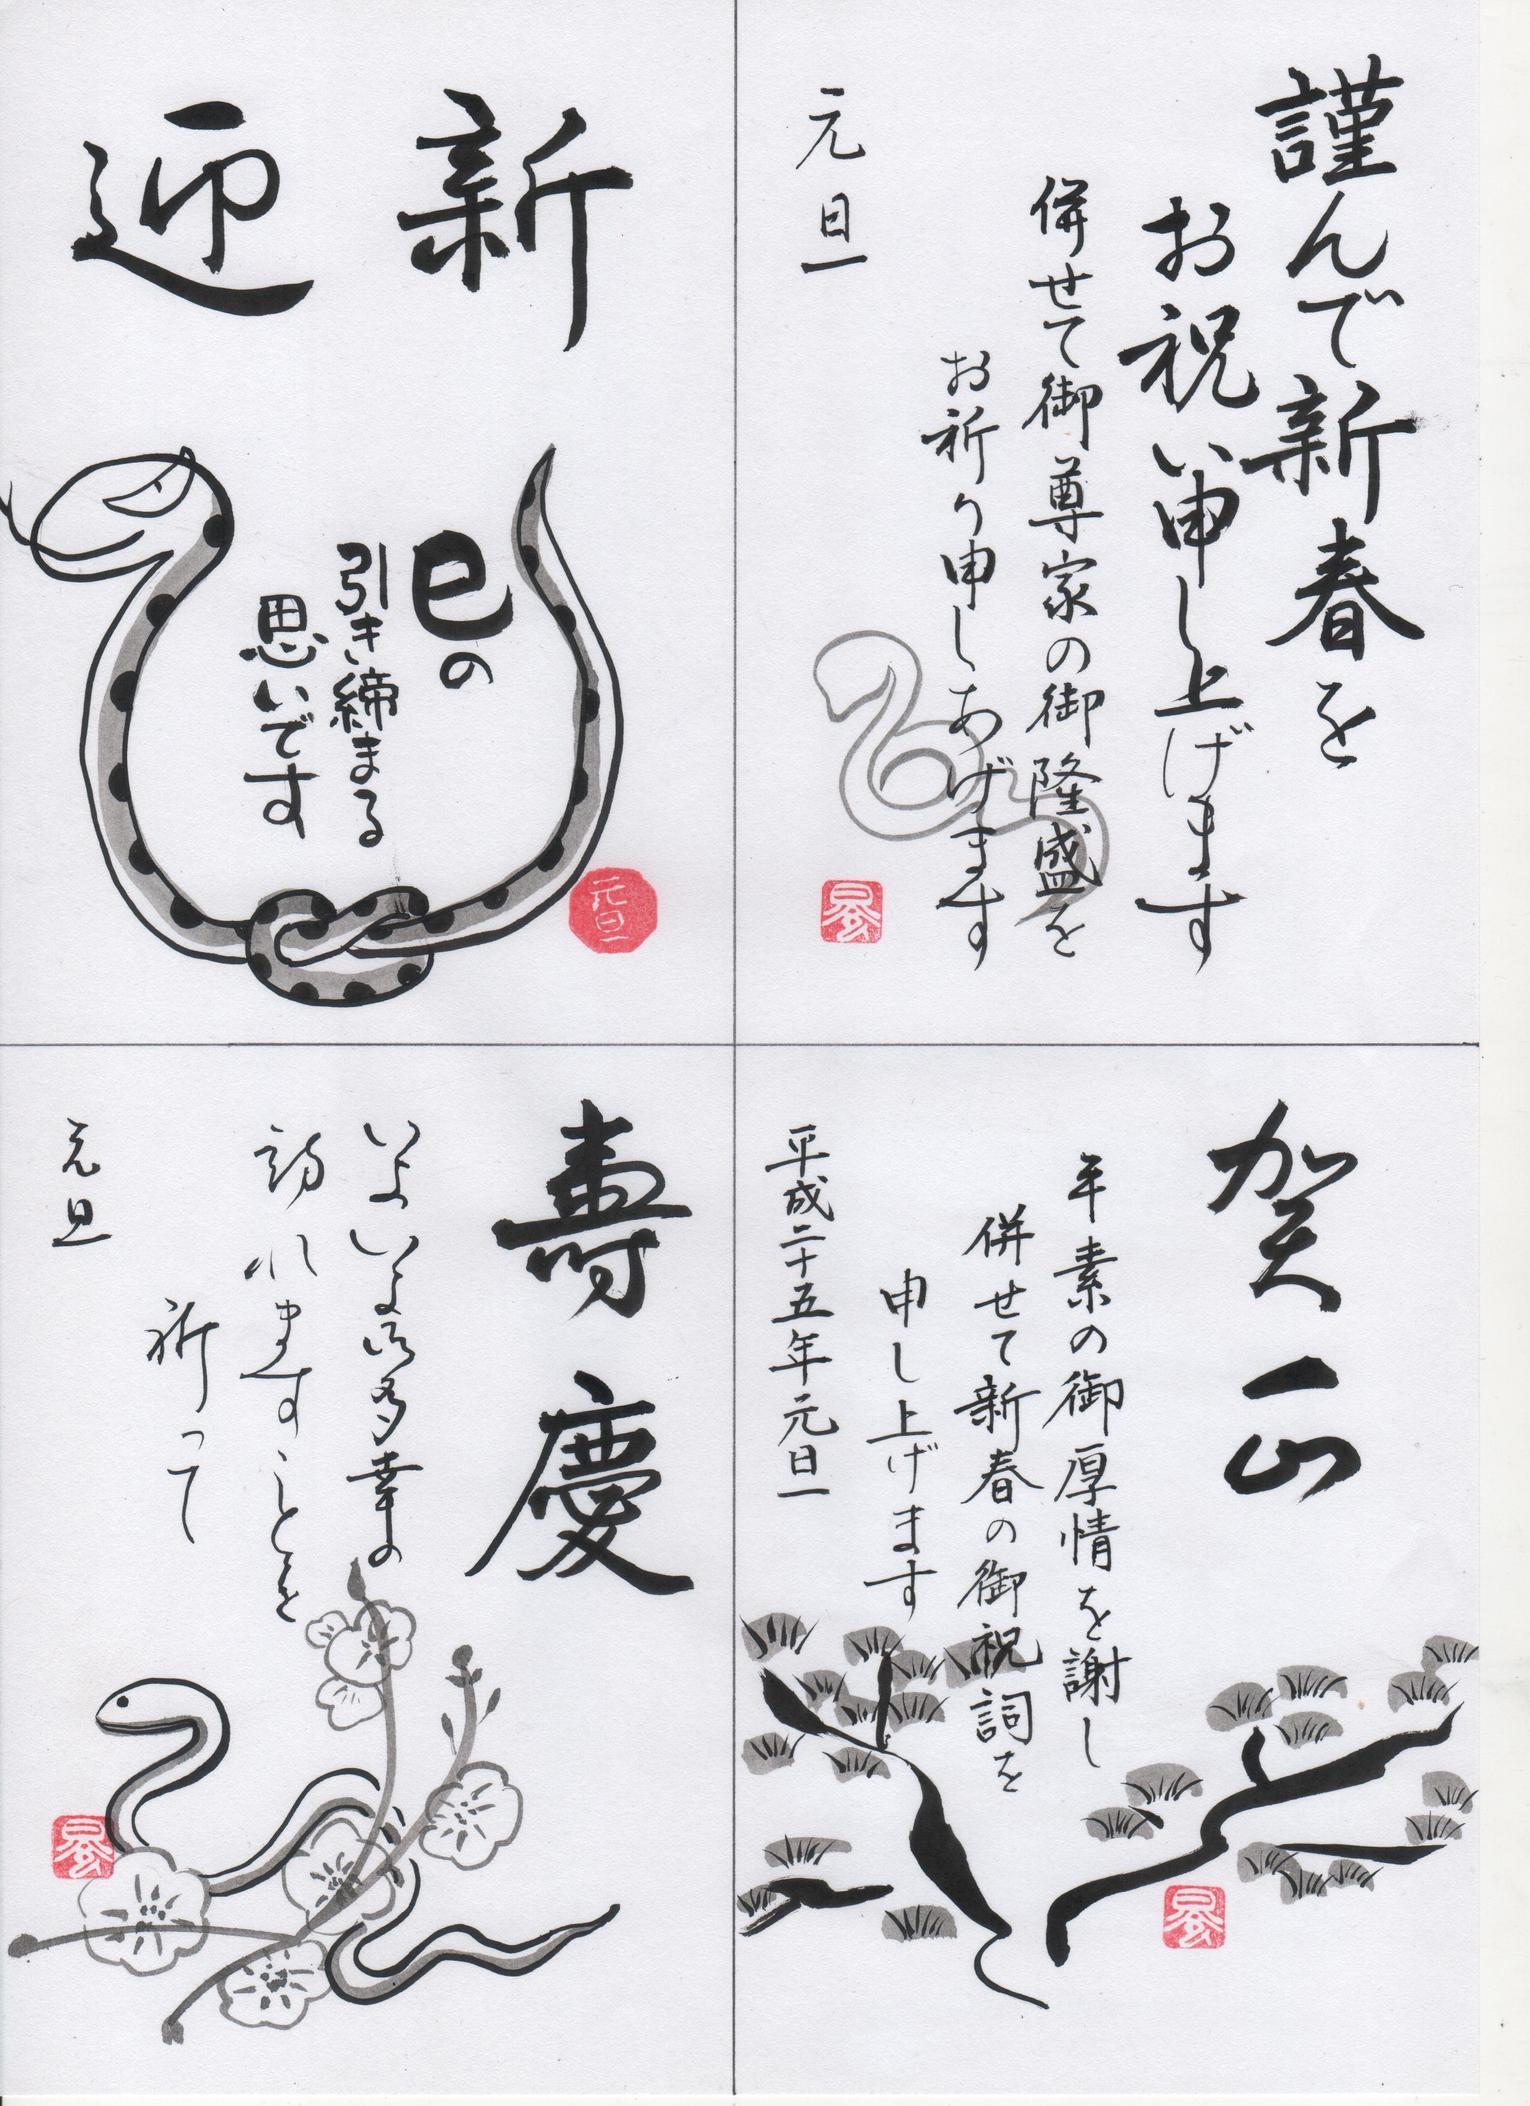 謹んで新春を
お祝い申し上げます
併せて御尊家の御隆盛を
お祈り申しあげます
元旦
新迎
巳の
引き締まる
思いです
元旦
賀正
年素の御厚情を謝し
併せて新春の御祝詞を
申し上げます
平成二十五年元旦
壽慶
いよいよ御多幸の
訪れますことを
祈って
元旦